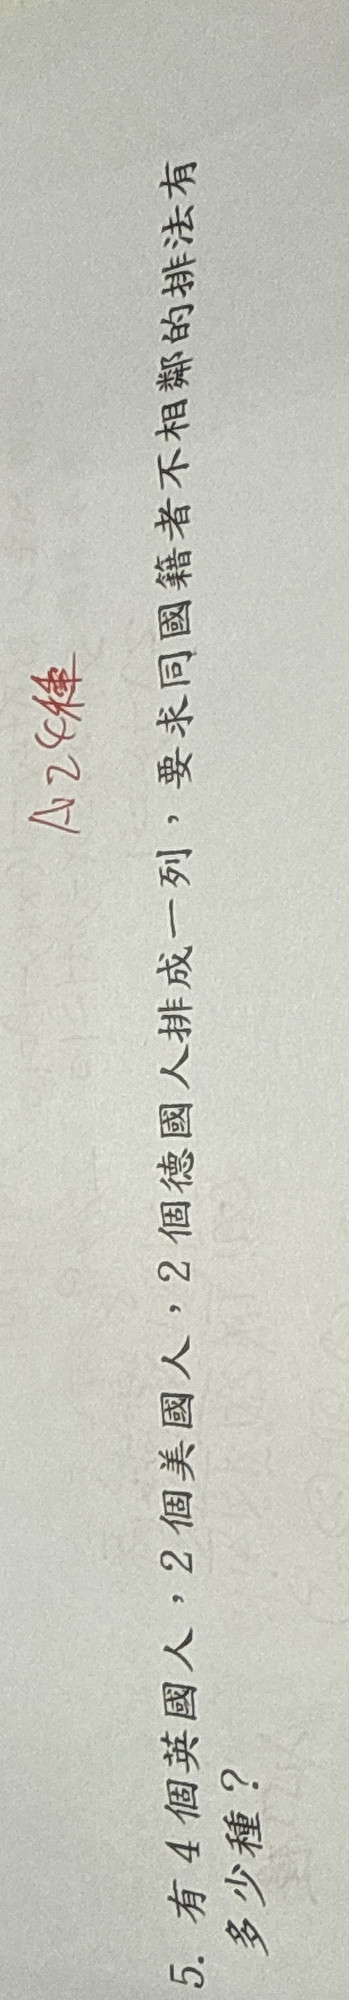 A:24種
5. 有 4 個英國人，2 個美國人，2 個德國人排成一列，要求同國籍者不相鄰的排法有
多少種？